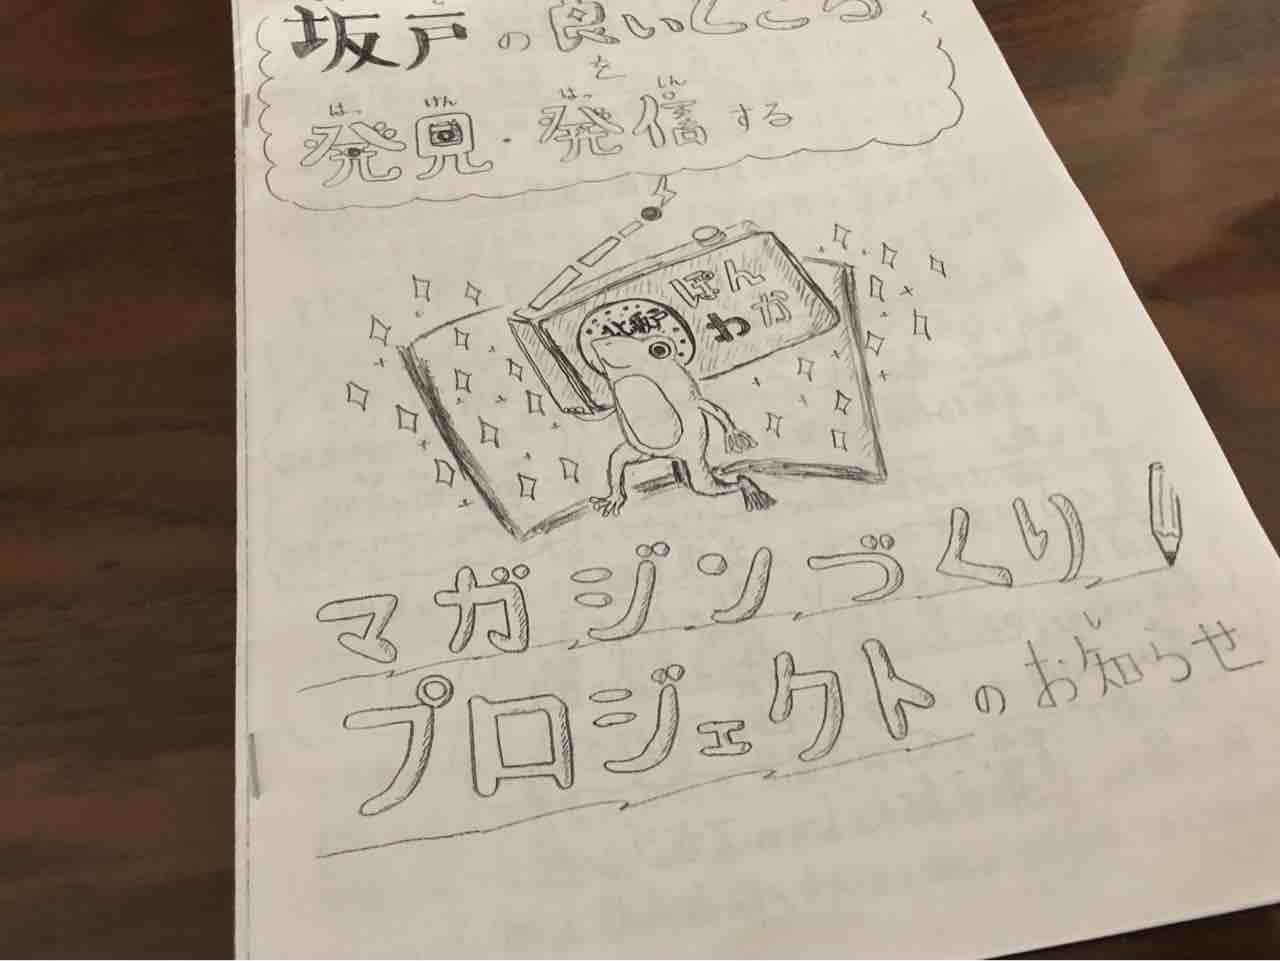 坂戸の良いところ
を
はっけん はっしん
発見・発信する
ぽん
わか
北坂戸
マガジンづくり
し
プロジェクトのお知らせ